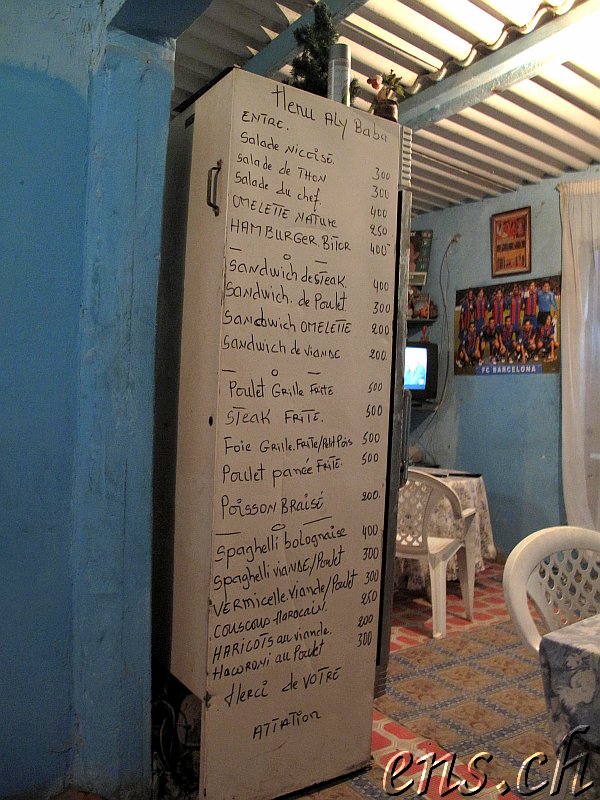 Menu Aly Baba
ENTRE.
Salade NICOISE. 300
Salade de THON 300
Salade du chef 400
OMELETTE NATURE 250
HAMBURGER BITOR 400
— o —
SANDWICH de STEAK. 400
SANDWICH. de Poulet. 300
SANDWICH OMELETTE 200
SANDWICH de VIANDE 200.
— o —
Poulet Grille FRITE 500
STEAK FRITE. 500
Foie Grille.FRITE/Petit Pois 500
Poulet panée FRITE. 500
POISSON BRAISÉ 200.
— o —
Spaghelli bolognaise 400
Spaghelli VIANDE/Poulet 300
VERMICELLE.Viande/Poulet 300
COUSCOUS Marocain. 250
HARICOTS au viande. 200
Macoroni au Poulet 300
Merci de VOTRE
ATTATION
FC BARCELONA
ens.ch